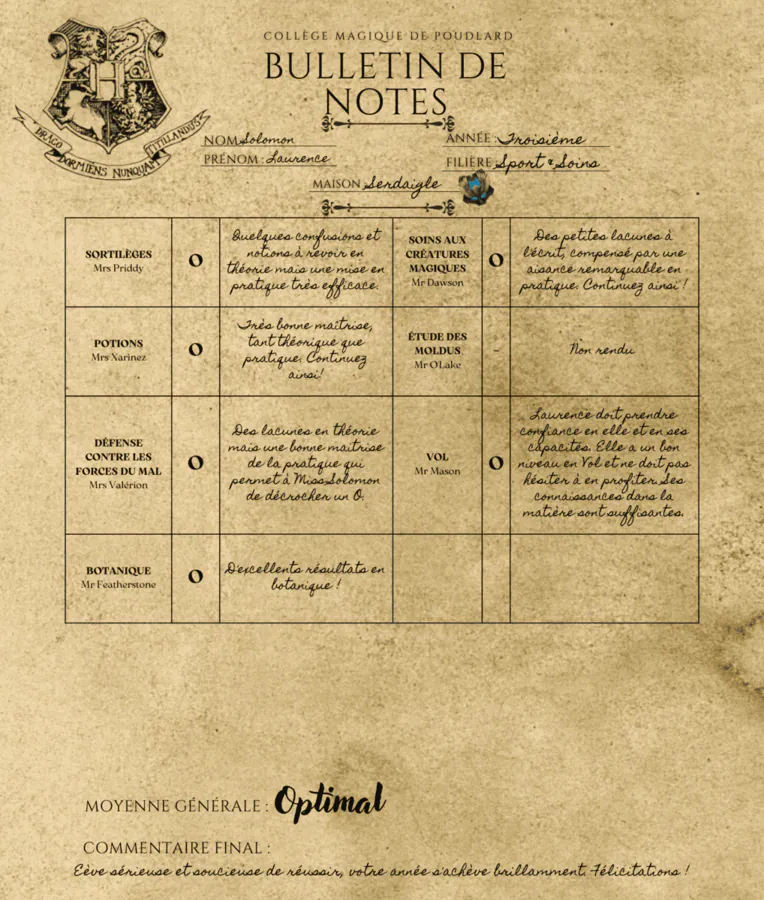 COLLÈGE MAGIQUE DE POUDLARD
BULLETIN DE
NOTES
DRACO
DORMIENS NUNQUAM
TITILLANDUS
NOM Solomon
PRÉNOM : Laurence
ANNÉE : Troisième
FILIÈRE Sport & Soins
MAISON Serdaigle
SORTILÈGES
Mrs Priddy
O
Quelques confusions et
notions à revoir en
théorie mais une mise en
pratique très efficace.
SOINS AUX
CRÉATURES
MAGIQUES
Mr Dawson
O
Des petites lacunes à
l'écrit, compensé par une
aisance remarquable en
pratique. Continuez ainsi !
POTIONS
Mrs Xarinez
O
Très bonne maîtrise,
tant théorique que
pratique. Continuez
ainsi!
ÉTUDE DES
MOLDUS
Mr O'Lake
-
Non rendu
DÉFENSE
CONTRE LES
FORCES DU MAL
Mrs Valérion
O
Des lacunes en théorie
mais une bonne maîtrise
de la pratique qui
permet à Miss Solomon
de décrocher un O.
VOL
Mr Mason
O
Laurence doit prendre
confiance en elle et en ses
capacités. Elle a un bon
niveau en Vol et ne doit pas
hésiter à en profiter. Ses
connaissances dans la
matière sont suffisantes.
BOTANIQUE
Mr Featherstone
O
D'excellents résultats en
botanique !
MOYENNE GÉNÉRALE : Optimal
COMMENTAIRE FINAL :
Eève sérieuse et soucieuse de réussir, votre année s'achève brillamment. Félicitations !